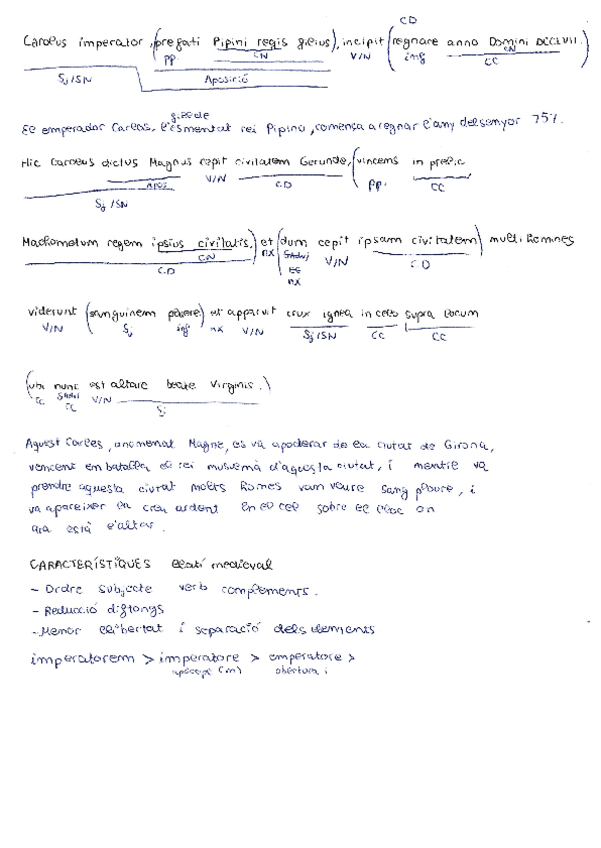 CD
Carolus imperator, (prefati Pipini regis filius), incipit (regnare anno Domini DCCLVII.)
PP CN V/N inf CN CC
Sj/SN Aposició
fill de
El emperador Carles, l'esmentat rei Pipino, comença a regnar l'any del senyor 757.
Hic Carolus dictus Magnus cepit civitatem Gerunde, (vincens in prelio
apos V/N CD PP. CC
Sj/SN
Machometum regem ipsius civitatis,) et (dum cepit ipsam civitatem) multi homines
CN nx V/N CD
CD nx
viderunt (sanguinem pluere) et apparuit crux ignea in celo supra locum
V/N Sj inf nx V/N Sj/SN CC CC
(ubi nunc est altare beate Virginis.)
CC V/N
CC Sj
Aquest Carles, anomenat Magne, es va apoderar de la ciutat de Girona,
vencent em batalla el rei musulmà d'aquesta ciutat, i mentre va
prendre aquesta ciutat molts homes vam veure sang ploure, i
va apareixer la creu ardent en el cel sobre el lloc on
ara està l'altar.
CARACTERÍSTIQUES llatí medieval
- Ordre subjecte verb complements.
- Reducció diftongs
- Menor llibertat i separació dels elements
imperatorem > imperatore > emperatore >
apòcope (m) obertura i